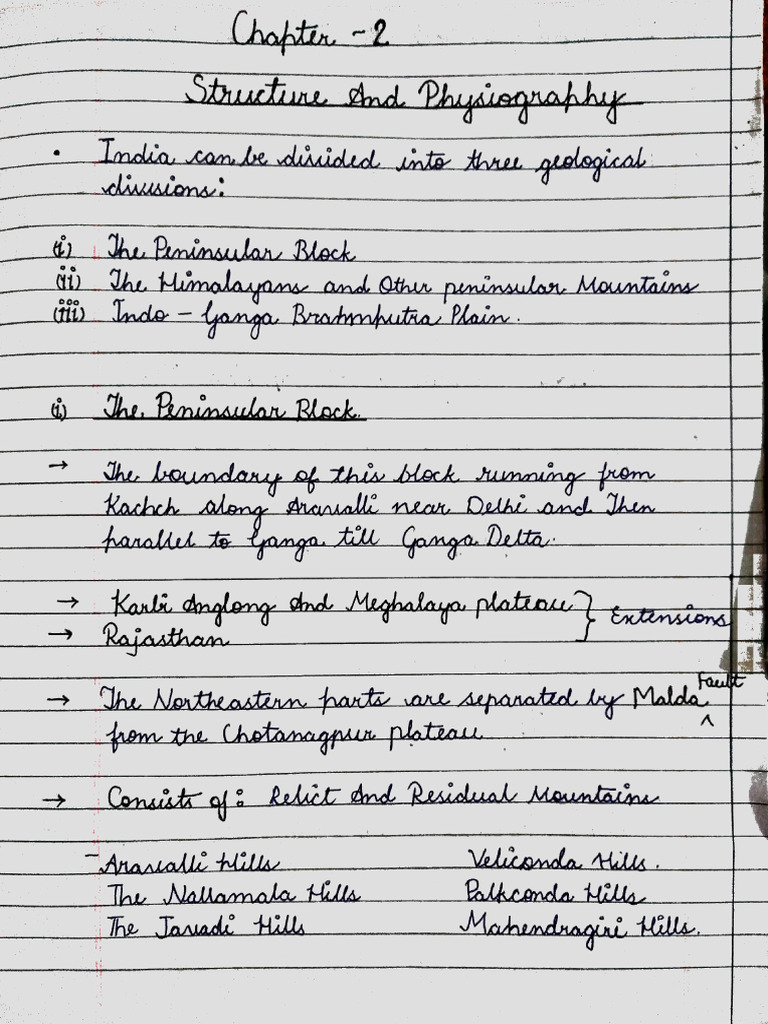 Chapter - 2
Structure And Physiography
• India can be divided into three geological
divisions:
(i) The Peninsular Block
(ii) The Himalayans and Other peninsular Mountains
(iii) Indo - Ganga Brahmputra Plain.
(i) The Peninsular Block.
→ The boundary of this block running from
Kachch along Aravalli near Delhi and Then
parallel to Ganga till Ganga Delta.
→ Karbi Anglong And Meghalaya plateau } Extensions
→ Rajasthan
→ The Northeastern parts are separated by Malda ^ Fault
from the Chotanagpur plateau
→ Consists of: Relict And Residual Mountains
- Aravalli Hills Veliconda Hills.
The Nallamala Hills Palkconda Hills
The Javadi Hills Mahendragiri Hills.